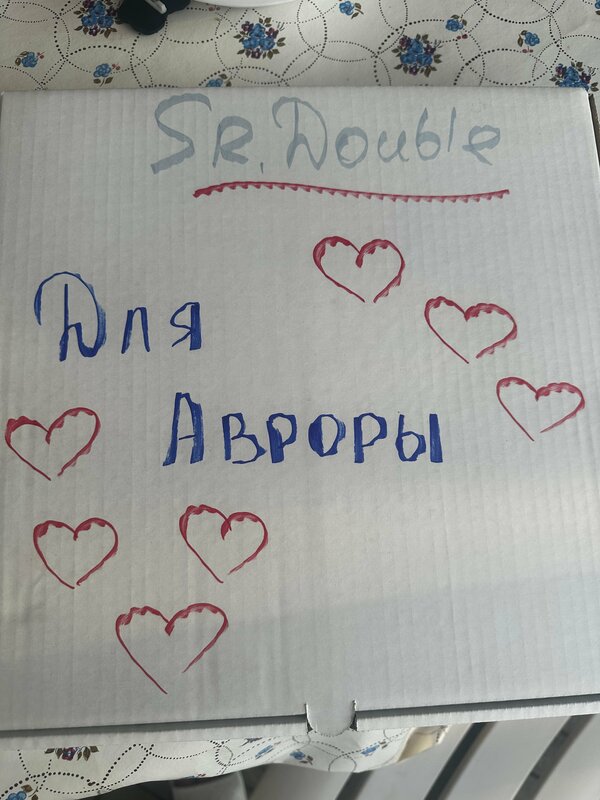 SR. Double
Для
Авроры